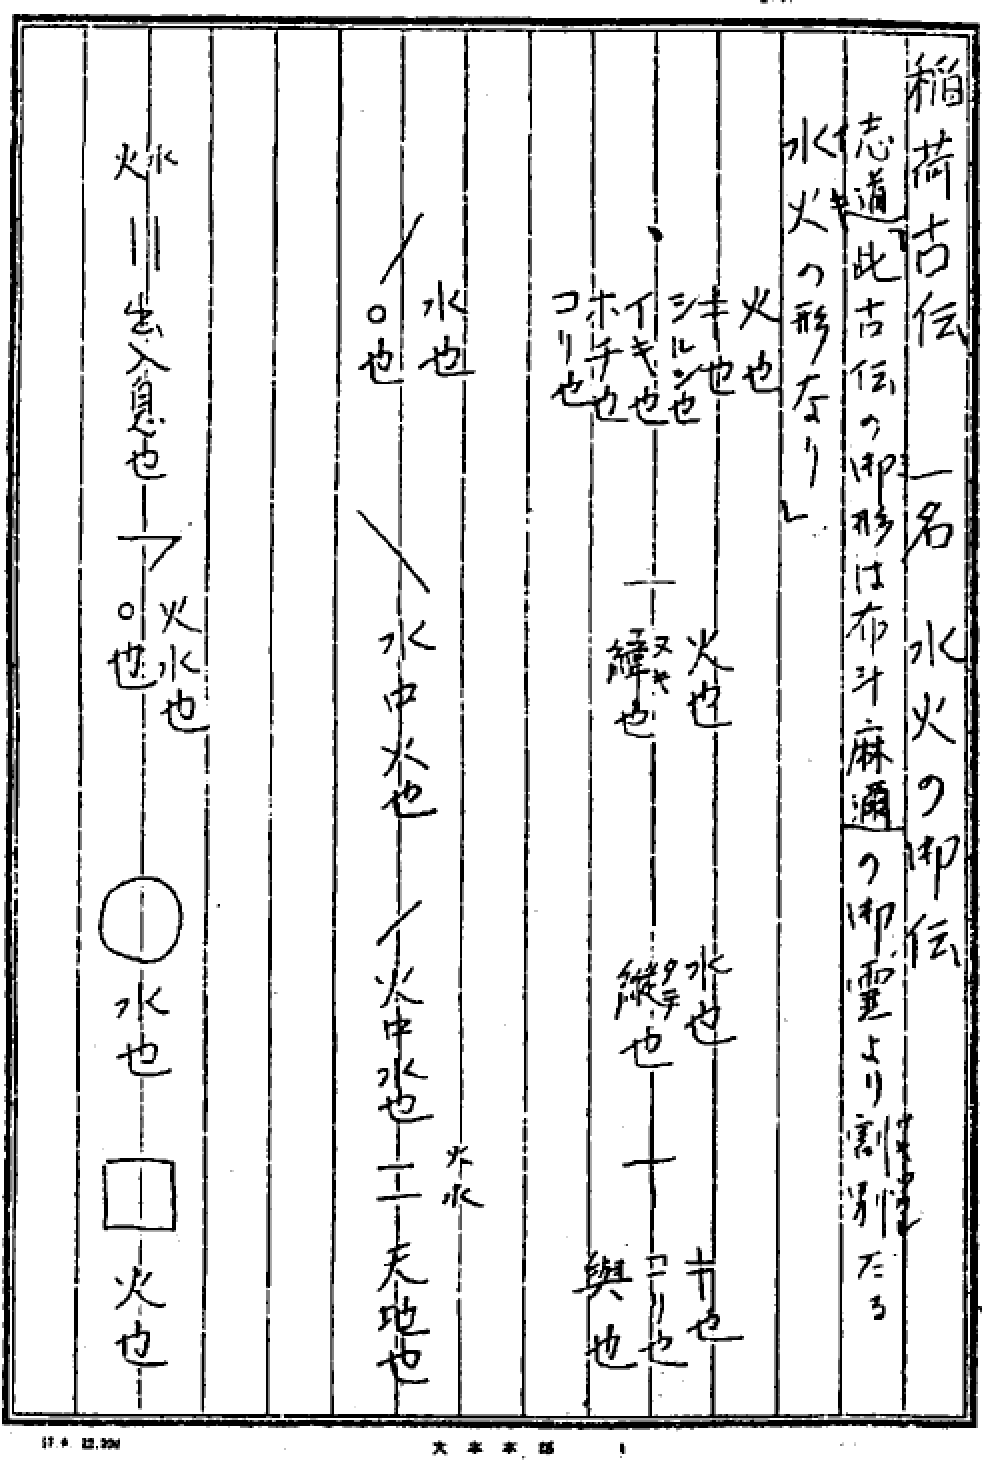 稲荷古伝　一名　水火の御伝
志道「此古伝の御形は布斗麻邇の御霊より割別たる
水火の形なり」
火也
キ也
シルシ也
イキ也
ホチ也
コリ也
火也
緯也
ヌキ
水也
縦也
タテ
十也
コリ也
與也
水也
○也
水中火也
火中水也
火水
天地也
水火
出入息也
火水也
○也
水也
火也
大本本部